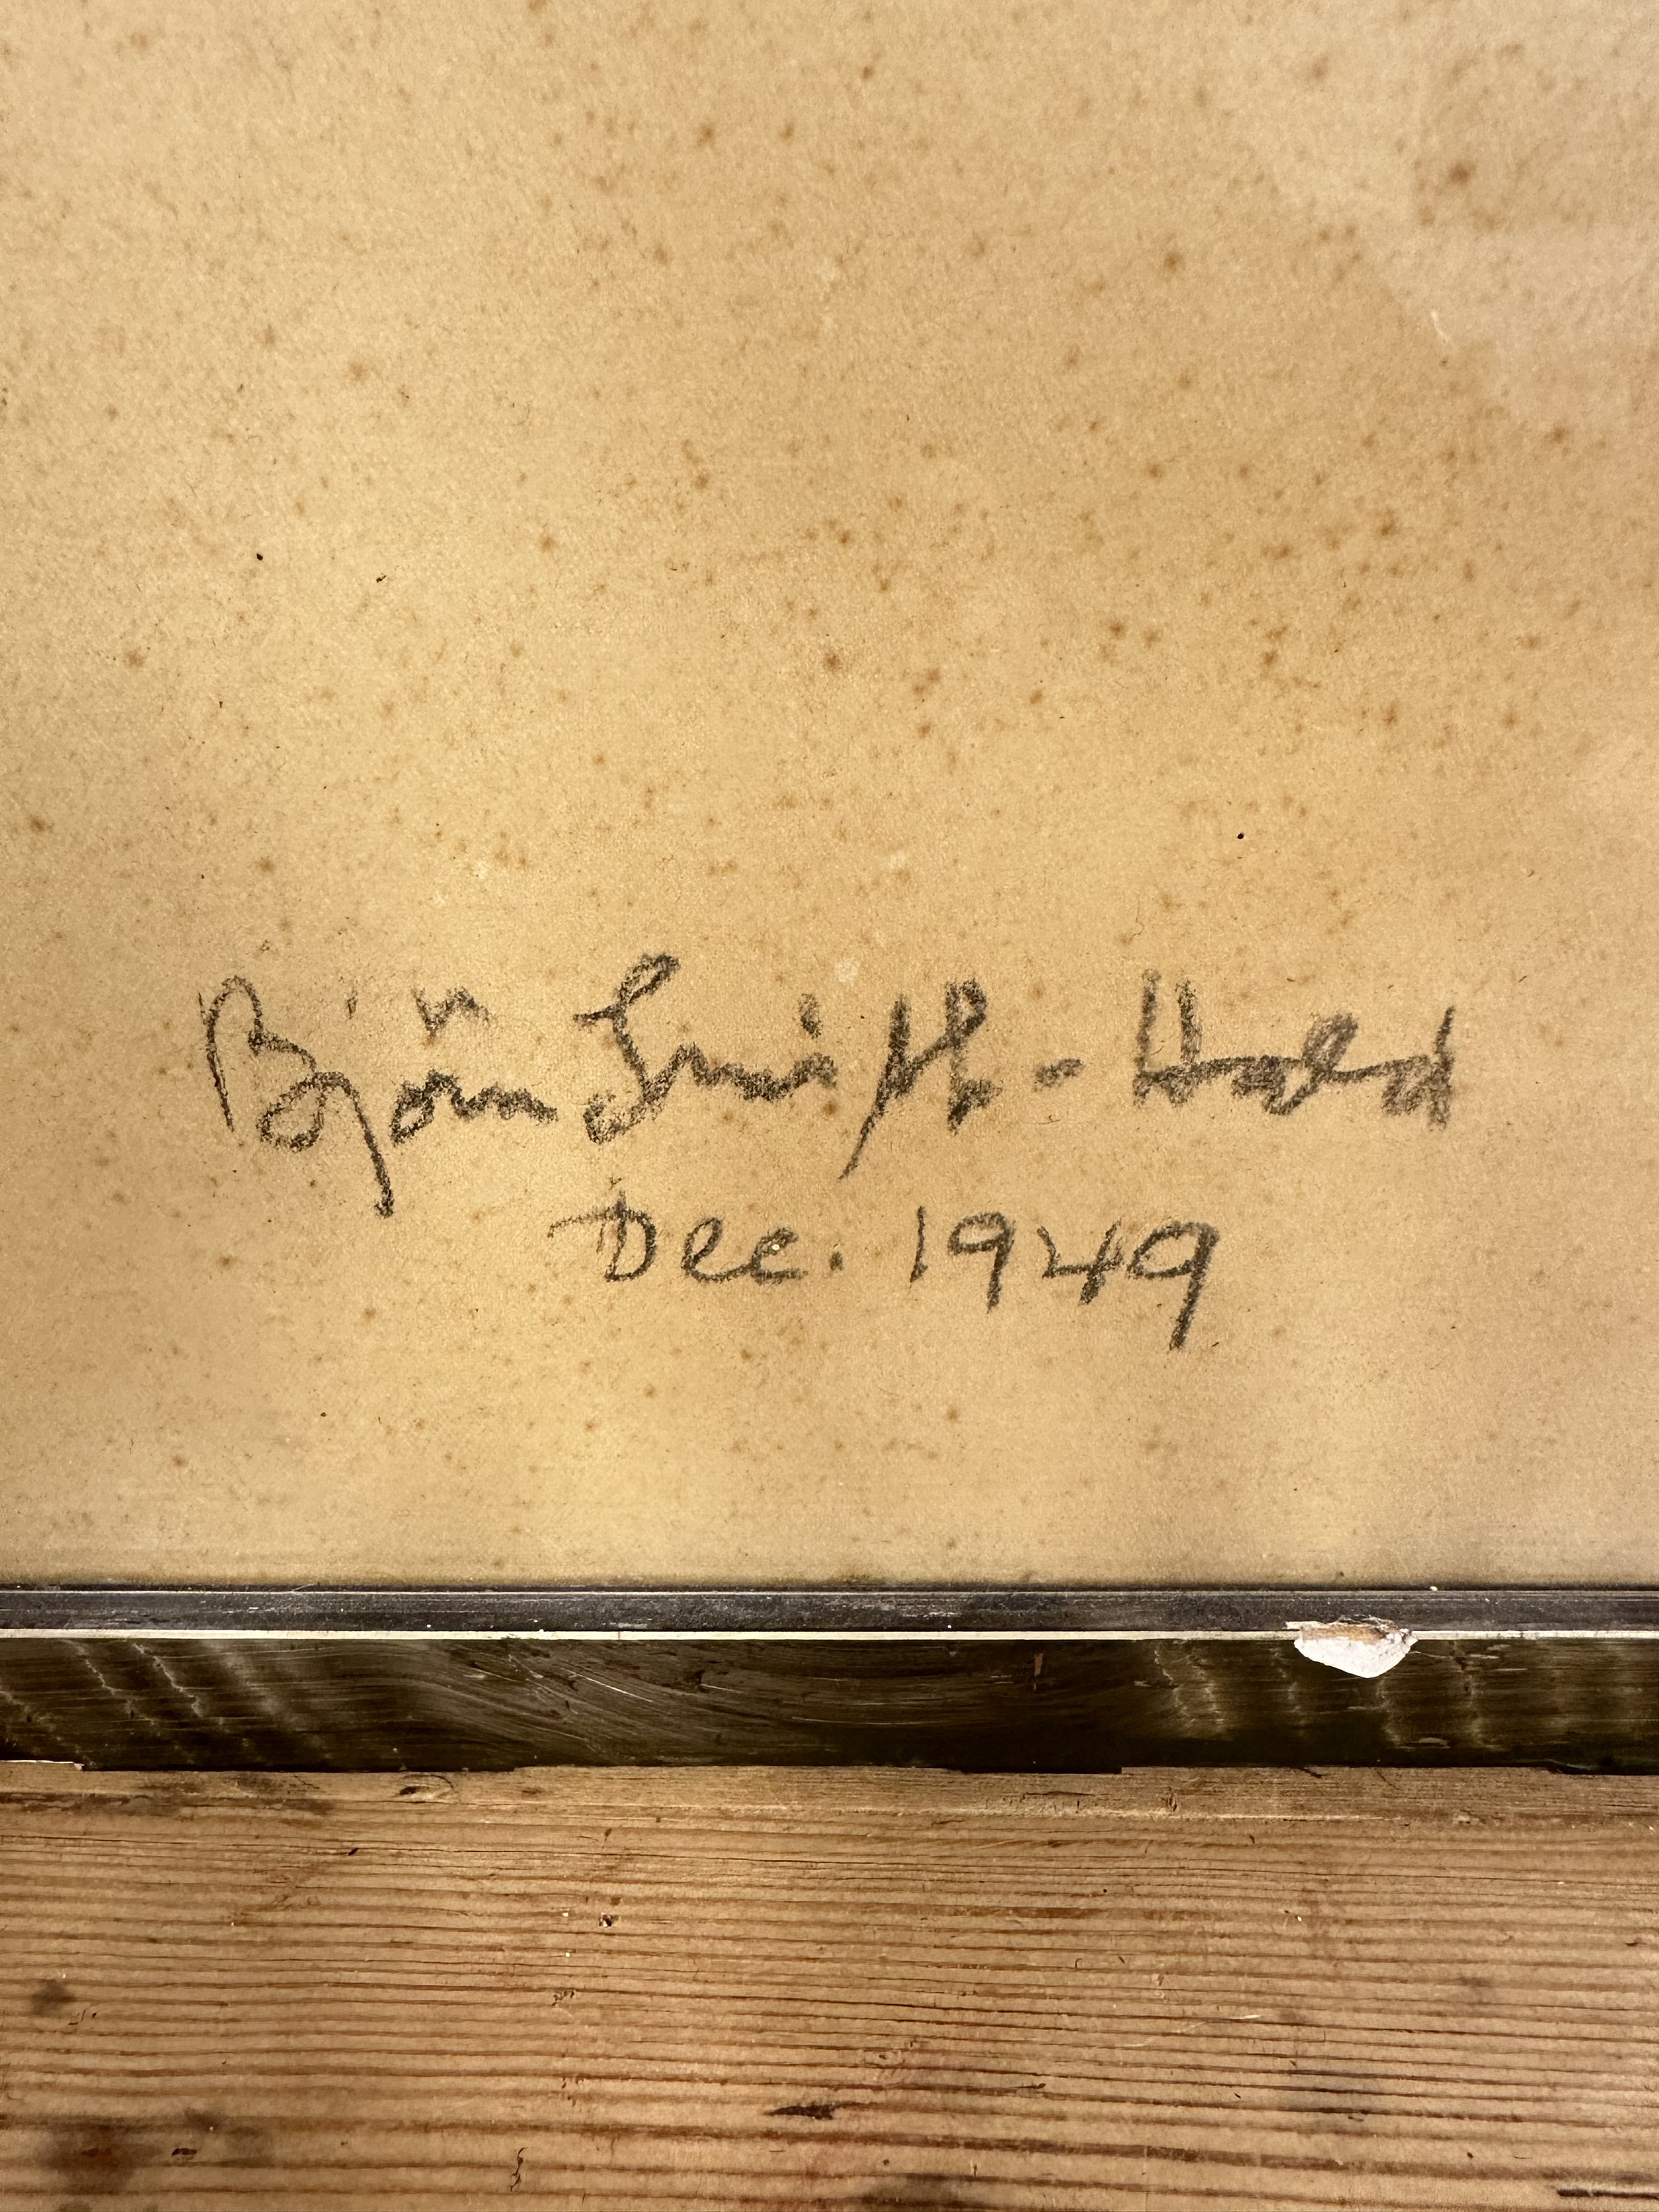 Björn Smith-Hald
Dec. 1949